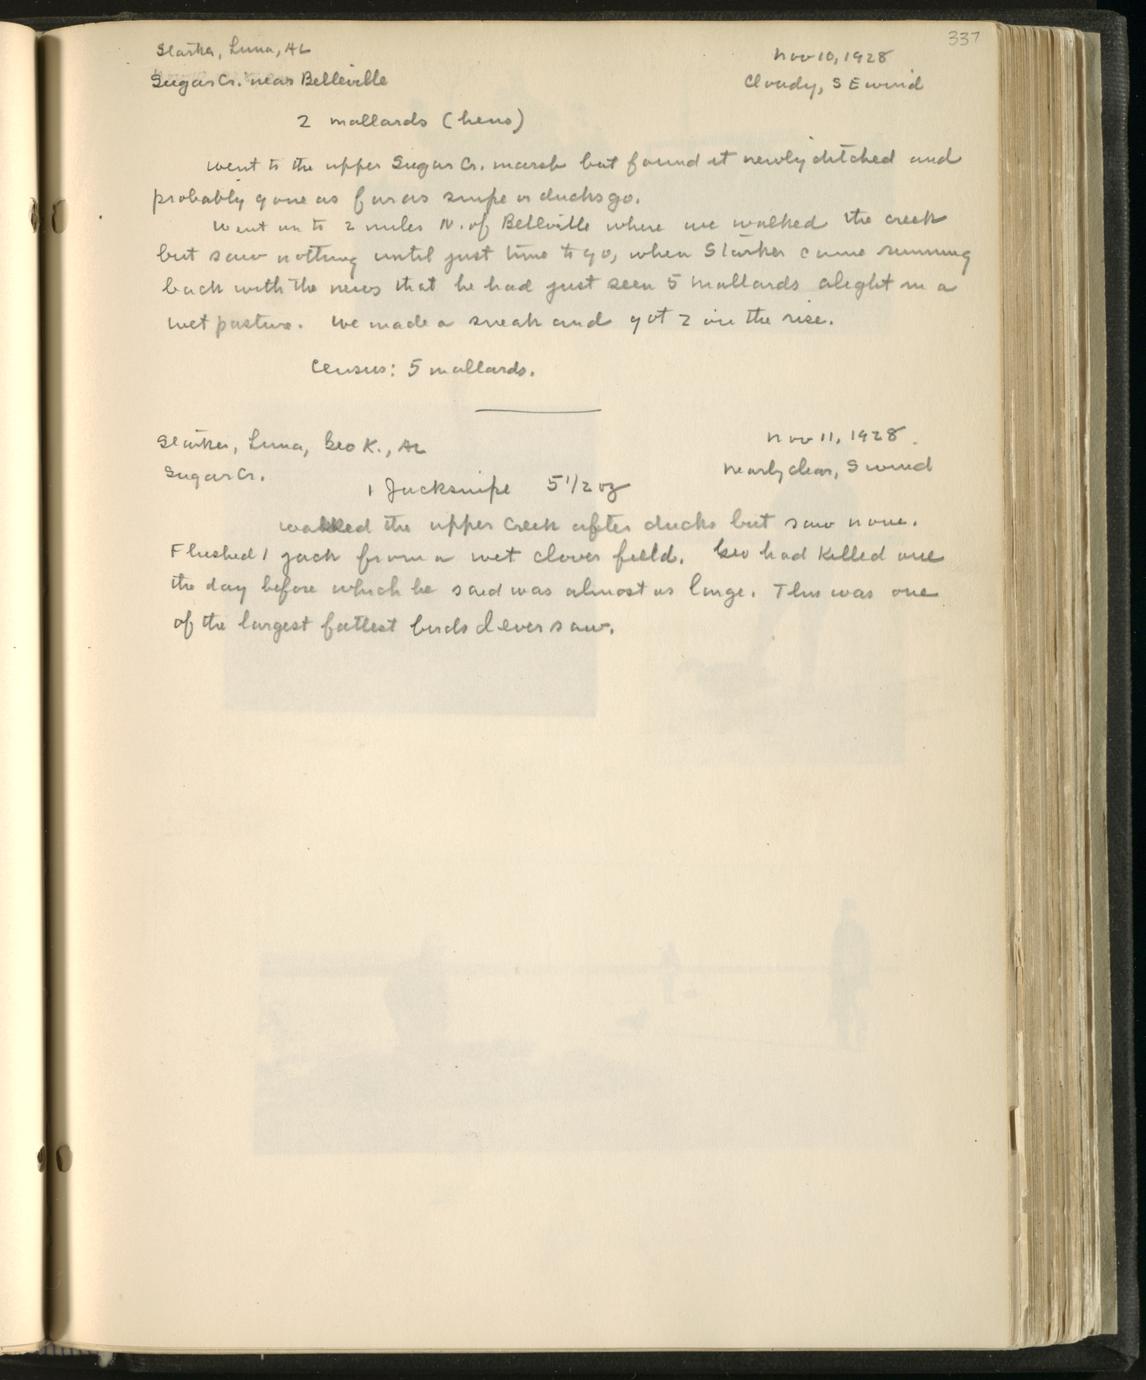 337
Starker, Luna, AL
Nov 10, 1928
Sugar Cr. near Belleville
Cloudy, S E wind
2 mallards (hens)
Went to the upper Sugar Cr. marsh but found it newly ditched and
probably gone as far as snipe or ducks go.
Went on to 2 miles N. of Belleville where we walked the creek
but saw nothing until just time to go, when Starker came running
back with the news that he had just seen 5 mallards alight in a
wet pasture. We made a sneak and got 2 on the rise.
Census: 5 mallards.
Starker, Luna, Geo K., AL
Nov 11, 1928.
Sugar Cr.
Nearly clear, S wind
1 Jacksnipe 5 1/2 oz
Walked the upper Creek after ducks but saw none.
Flushed 1 jack from a wet clover field. Geo had killed one
the day before which he said was almost as large. This was one
of the largest fattest birds I ever saw.